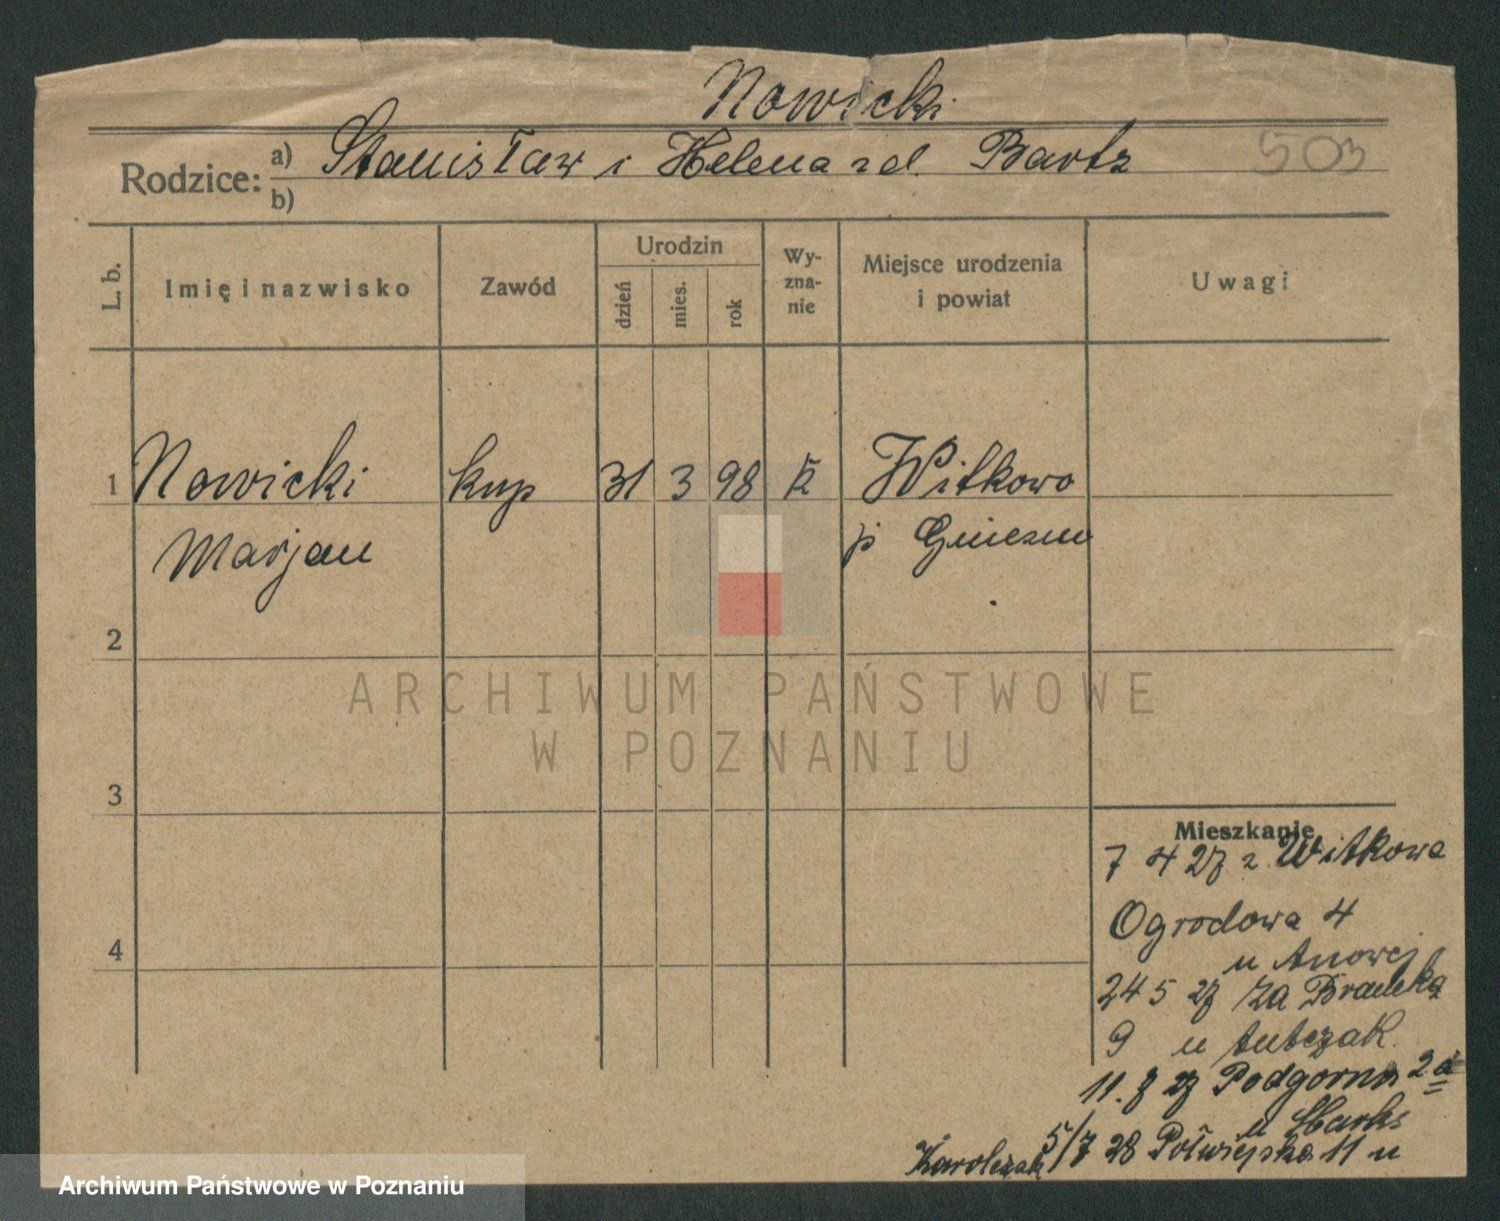 Nowicki
Rodzice: a) Stanisław i Helena zd. Bartz 503
b)
L. b. Imię i nazwisko Zawód Urodzin dzień mies. rok Wyznanie Miejsce urodzenia i powiat Uwagi
1 Nowicki kup 31 3 98 k Witkowo
Marjan p Gniezno
2
ARCHIWUM PAŃSTWOWE
W POZNANIU
3
Mieszkanie
7 4 27 z Witkowa
Ogrodowa 4
u
24 5 27 Za Bramką
9 u Antczak
11. 27 Podgorna 2a
u Marks
5/7 28 Półwiejska 11 u
Karolczak
4
Archiwum Państwowe w Poznaniu